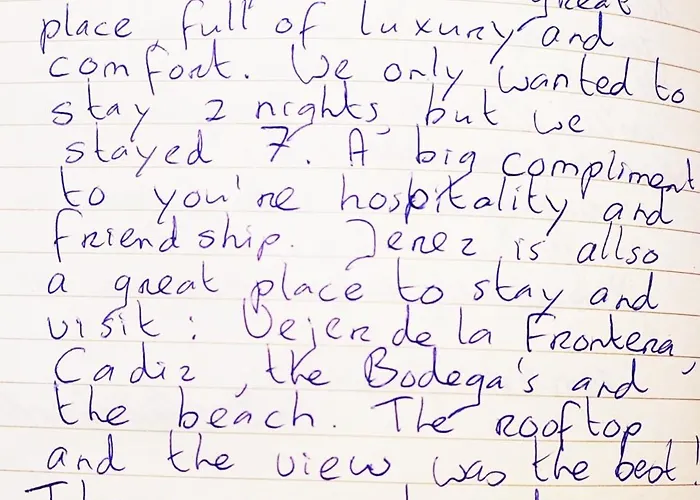 great
place, full of luxury and
comfort. We only wanted to
stay 2 nights, but we
stayed 7. A big compliment
to you're hospitality and
friendship. Jerez is allso
a great place to stay and
visit : Vejer de la Frontera,
Cadiz, the Bodega's and
the beach. The rooftop
and the view was the best!